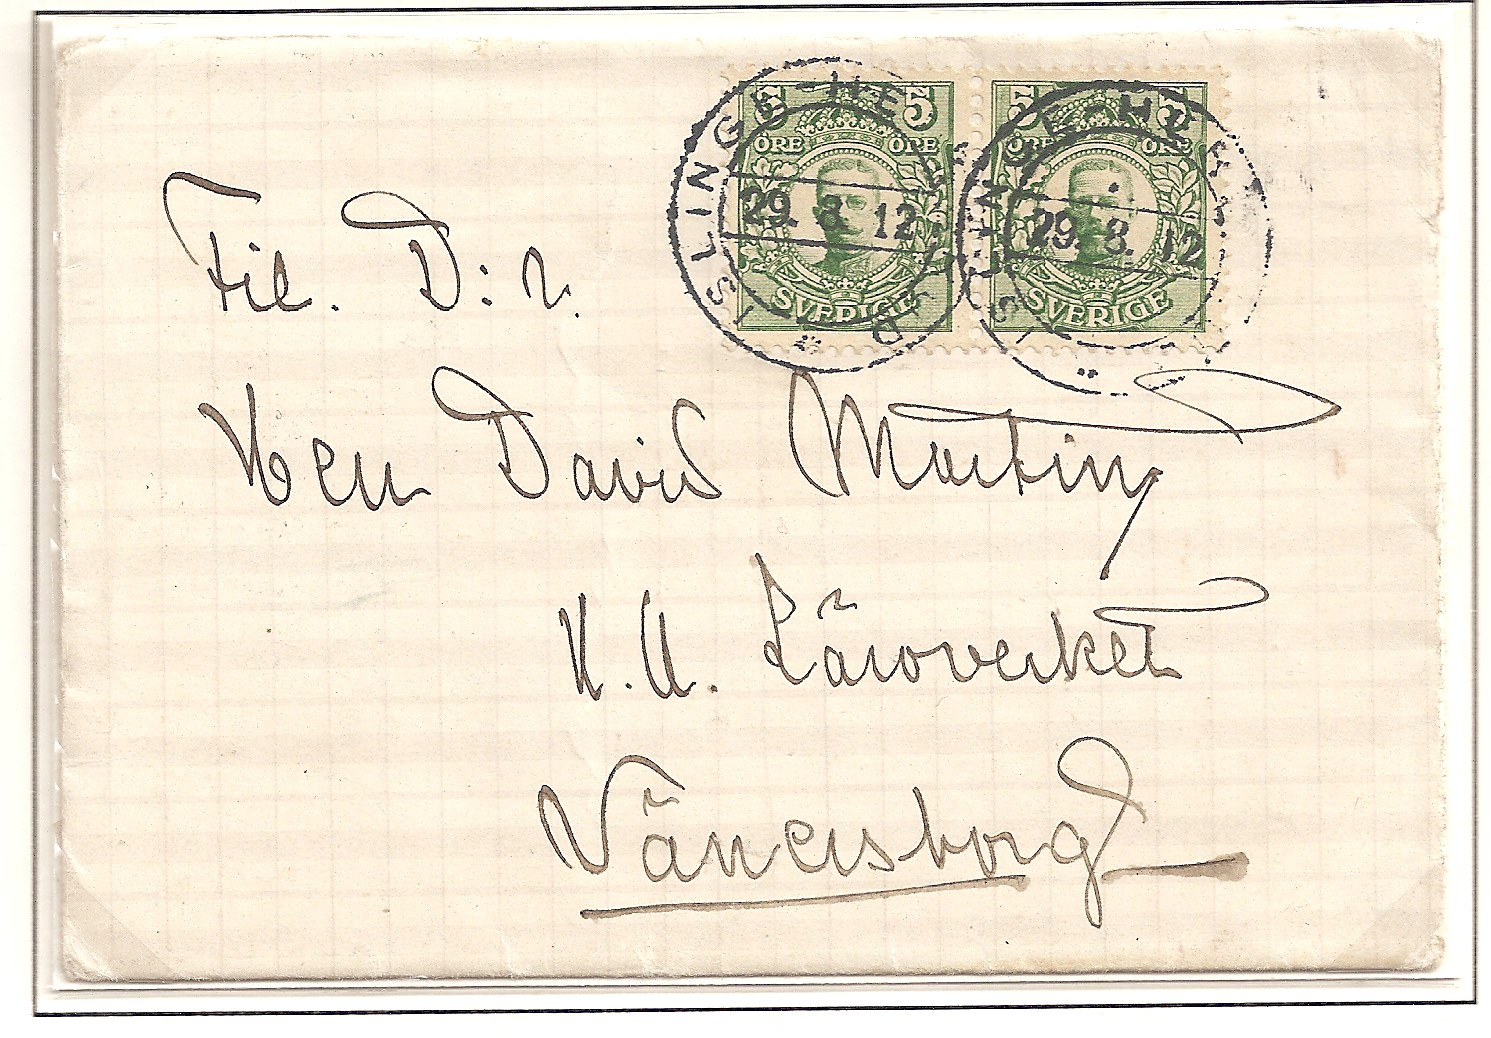 5 5
ÖRE ÖRE
29. 8. 12
SVERIGE
5 5
ÖRE ÖRE
29. 8. 12
SVERIGE
Fil. D:r.
Herr David Martin
H. A. Läroverket
Vänersborg